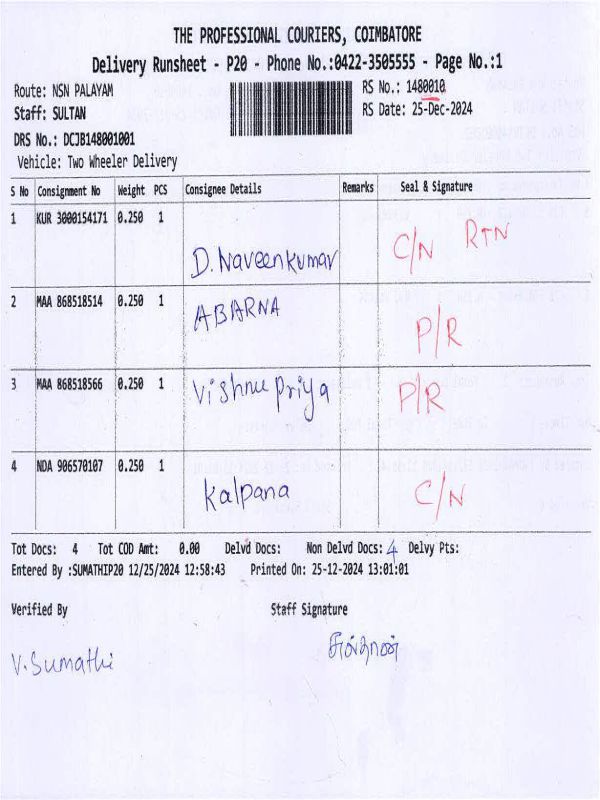 THE PROFESSIONAL COURIERS, COIMBATORE
Delivery Runsheet - P20 - Phone No.:0422-3505555 - Page No.:1
Route: NSN PALAYAM
RS No.: 1480010.
Staff: SULTAN
RS Date: 25-Dec-2024
DRS No.: DCJB148001001
Vehicle: Two Wheeler Delivery
S No Consignment No Weight PCS Consignee Details Remarks Seal & Signature
1 KUR 3000154171 0.250 1 D. Naveenkumar C/N RTN
2 MAA 868518514 0.250 1 ABARNA P/R
3 MAA 868518566 0.250 1 Vishnu Priya P/R
4 NDA 906570107 0.250 1 Kalpana C/N
Tot Docs: 4 Tot COD Amt: 0.00 Delvd Docs: Non Delvd Docs: 4 Delvy Pts:
Entered By :SUMATHIP20 12/25/2024 12:58:43 Printed On: 25-12-2024 13:01:01
Verified By Staff Signature
V. Sumathi சுல்தான்